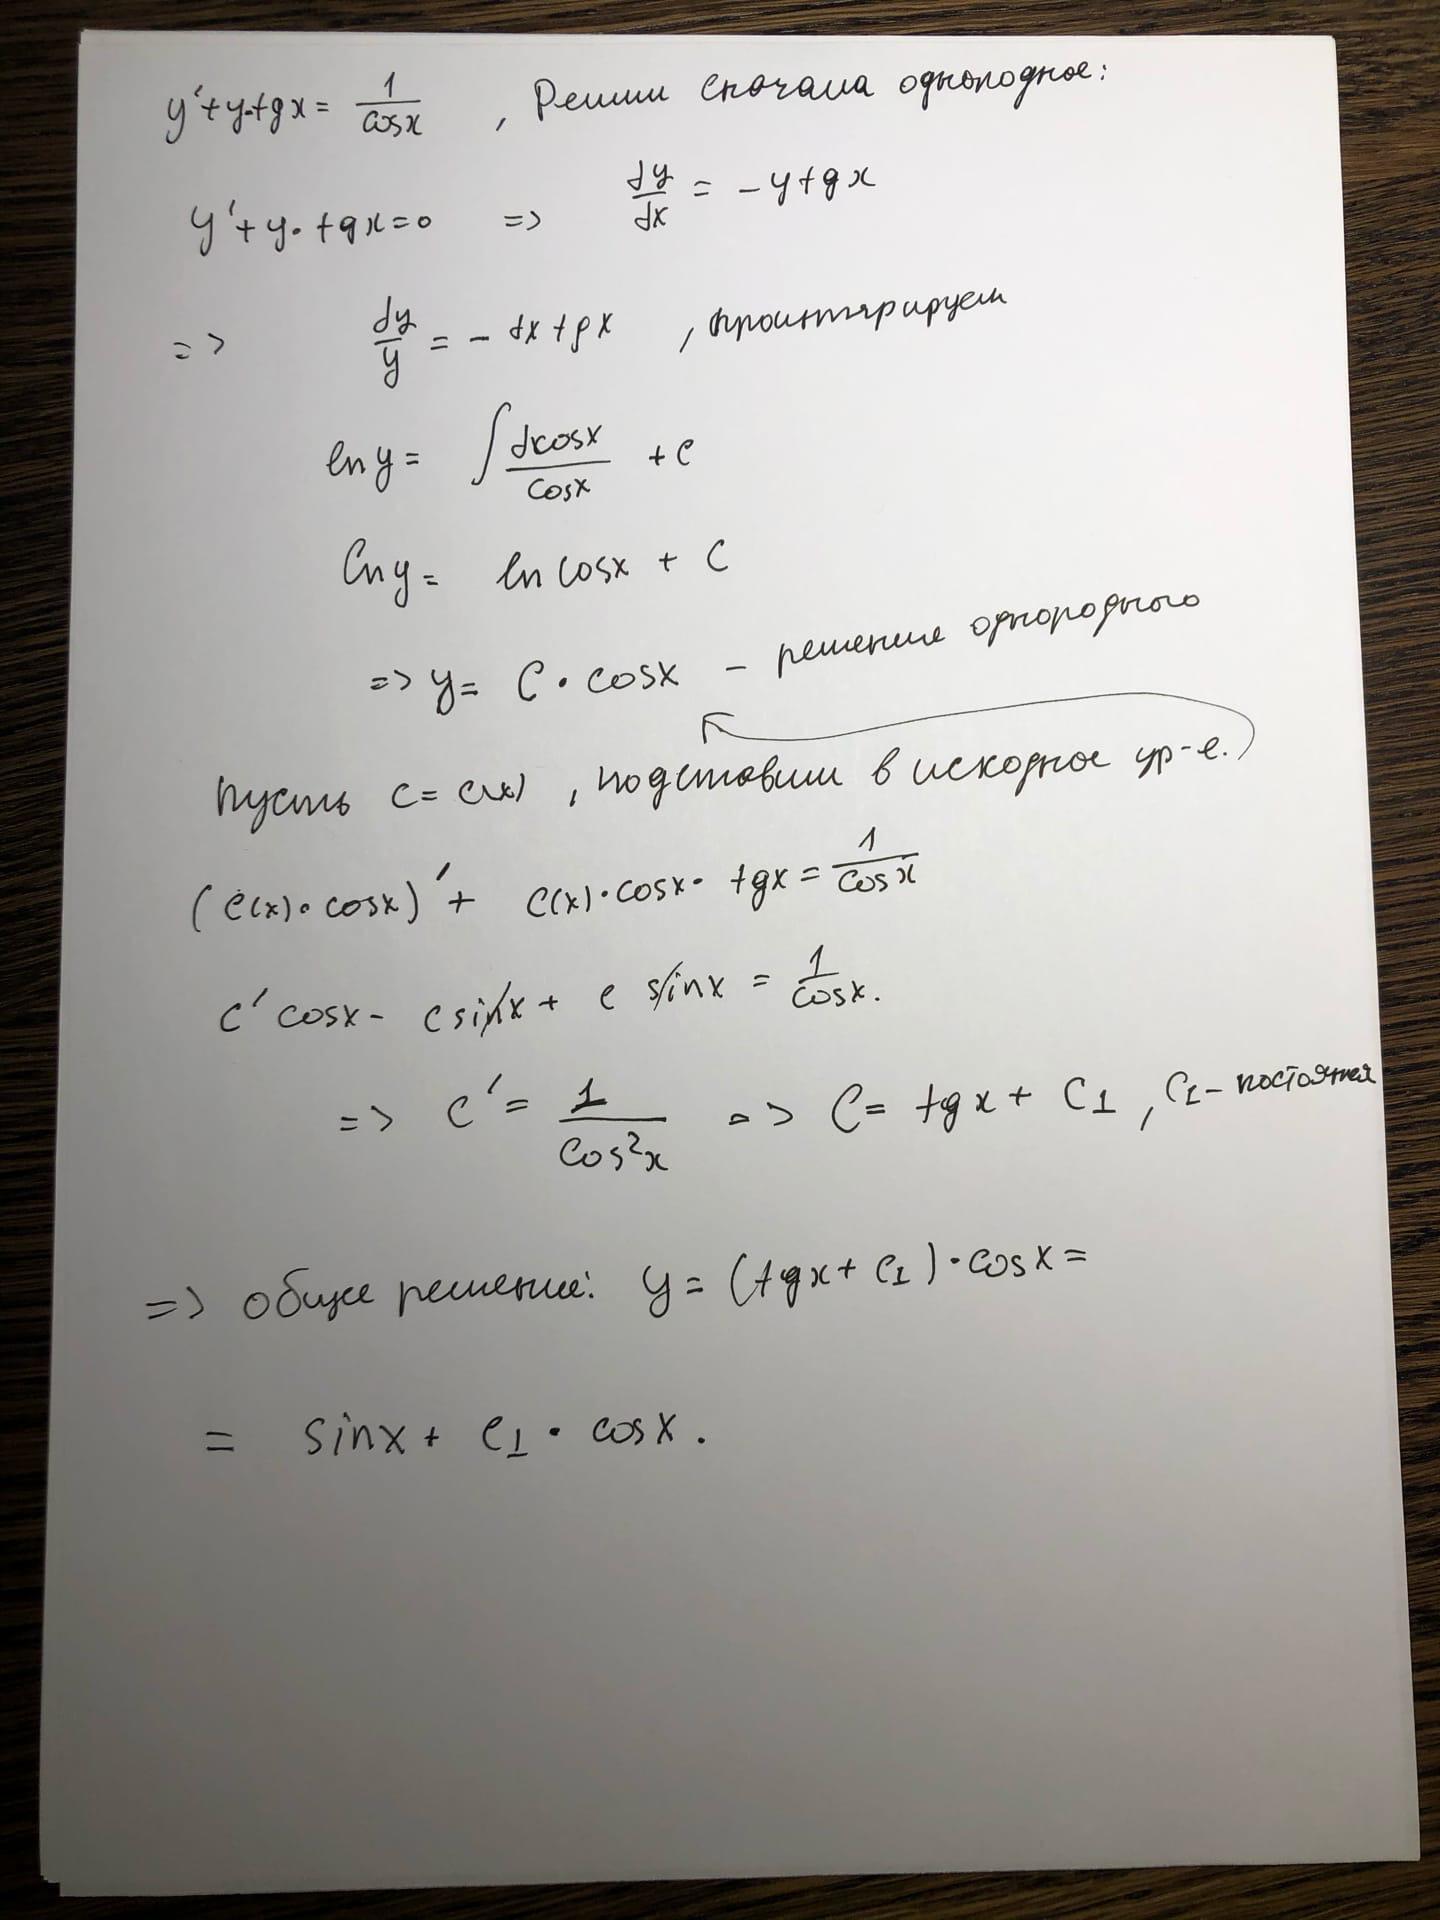 y' + y·tgx = 1/cosx , Решим сначала однородное:
y' + y·tgx = 0 => dy/dx = -y tgx
=> dy/y = -dx tgx , проинтегрируем
ln y = ∫ dcosx/cosx + C
ln y = ln cosx + C
=> y = C·cosx - решение однородного
Пусть C = C(x) , подставим в исходное ур-е.
(C(x)·cosx)' + C(x)·cosx·tgx = 1/cosx
C' cosx - C sinx + C sinx = 1/cosx.
=> C' = 1/cos²x => C = tgx + C₁ , C₁ - постоянная
=> общее решение: y = (tgx + C₁)·cosx =
= sinx + C₁·cosx.